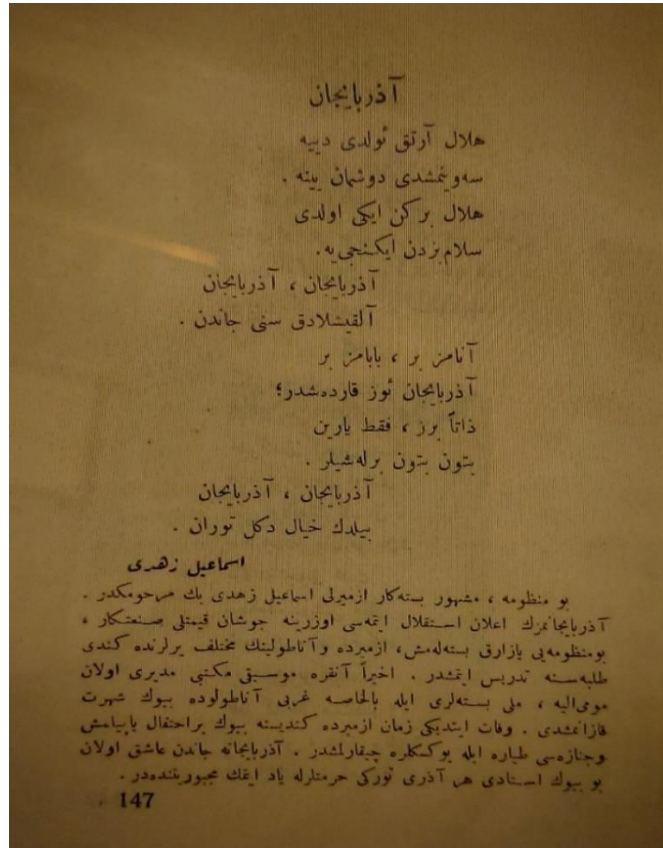 آذربايجان
هلال آرتق ئولدى دييه
سه‌وينمشدى دوشمان يينه .
هلال بركن ايكى اولدى
سلام بزدن ايكنجى‌يه .
آذربايجان ، آذربايجان
آلقيشلادق سنى جاندن .
آنامز بر ، بابامز بر
آذربايجان ئوز قارده‌شدر؛
ذاتاً برز ، فقط يارين
بتون بتون برله‌شيلر .
آذربايجان ، آذربايجان
بيلدك خيال دكل توران .
اسماعيل زهدى
بو منظومه ، مشهور بسته‌كار ازميرلى اسماعيل زهدى بك مرحومكدر .
آذربايجانمزك اعلان استقلال ايتمه‌سى اوزرينه جوشان قيمتلى صنعتكار ،
بومنظومه‌يى يازارق بسته‌له‌مش، ازميرده وآناطولينك مختلف يرلرنده كندى
طلبه‌سنه تدريس ايتمشدر . اخيراً آنقره موسيقى مكتبى مديرى اولان
مومى‌اليه ، ملى بسته‌لرى ايله بالخاصه غربى آناطولوده بيوك شهرت
قازانمشدى . وفات ايتديكى زمان ازميرده كنديسنه بيوك براحتفال ياپيلمش
وجنازه‌سى طياره ايله يوكسكلره چيقارلمشدر . آذربايجانه جاندن عاشق اولان
بو بيوك استادى هر آذرى توركى حرمتلرله ياد ايتمك مجبوريتنده‌در .
147